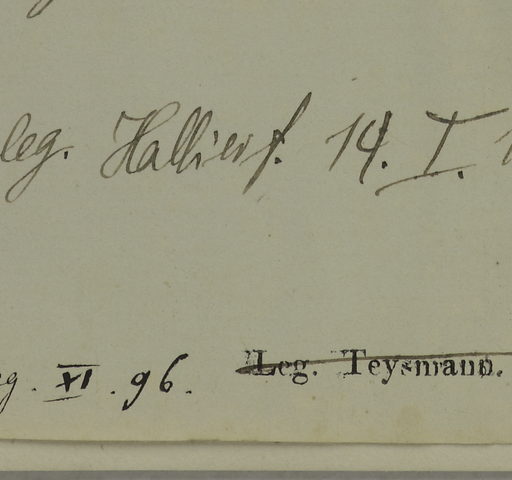 leg. Hallier f. 14. I. 1
g. XI. 96. Leg. Teysmann.